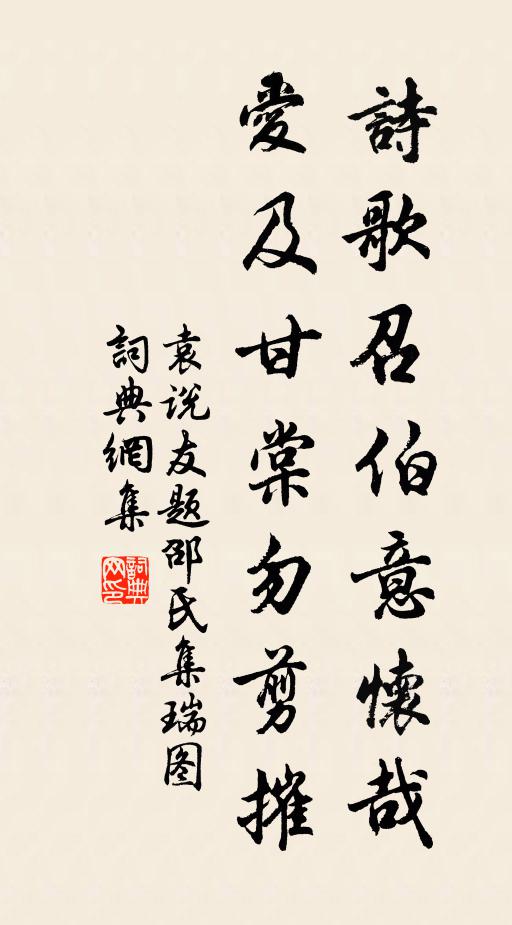 詩歌召伯意懷哉
愛及甘棠勿剪摧
袁说友题邵氏集瑞图
詞典網集
詞典网印